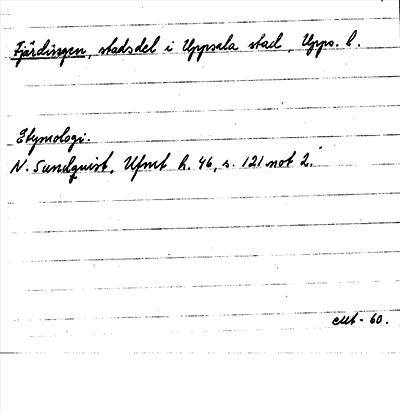 Fjärdingen, stadsdel i Uppsala stad, Upps. l.
Etymologi.
N. Sundquist, Ufmt h. 46, s. 121 not 2.